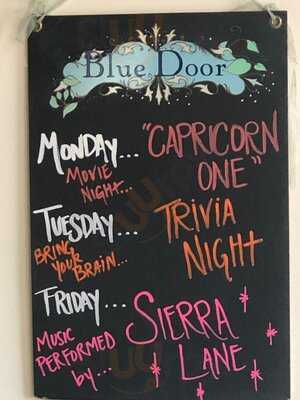 Blue Door
MONDAY... "CAPRICORN
MOVIE NIGHT... ONE"
TUESDAY... TRIVIA
BRING YOUR BRAIN... NIGHT
FRIDAY... SIERRA
MUSIC PERFORMED by... LANE